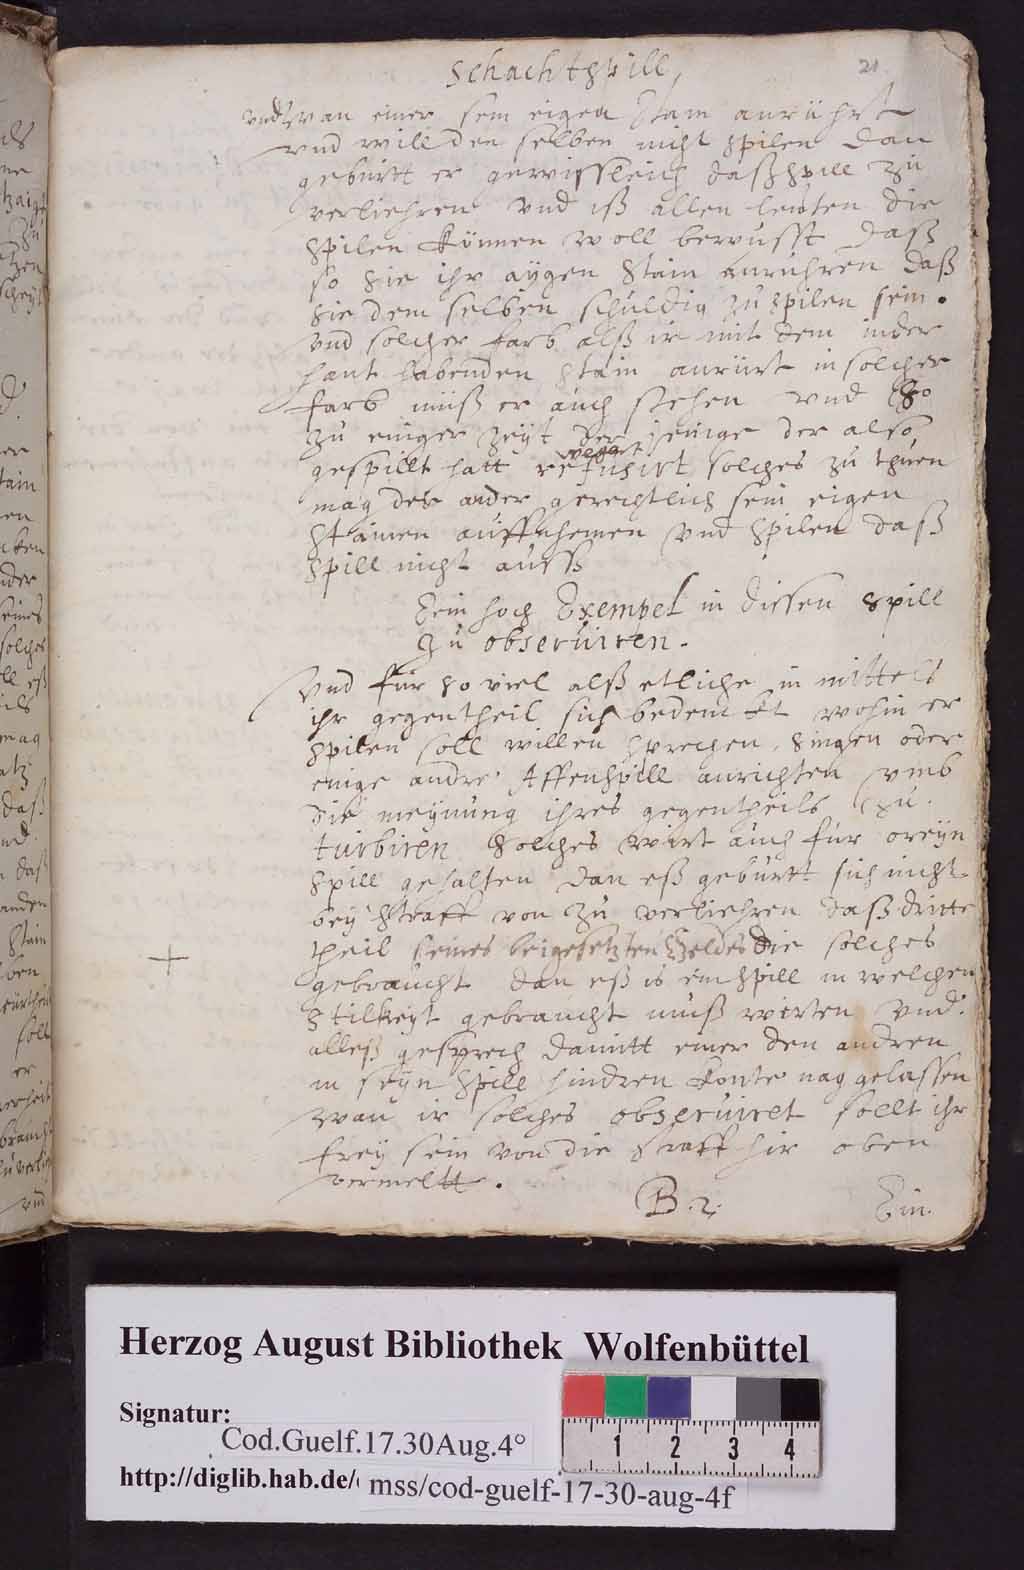 Schachtspill,
21
vndt wan einer sein eigen stain anrührt
vnd will den selben nicht spilen dan
gebürtt er gewissleich dass spill zu
verliehren vnd iß allen leuten die
spilen können woll bewusst daß
so sie ihr aygen stain anrühren daß
sie dem selbien schuldig zu spilen sein.
vnd solcher farb alß ir mit dem inder
hant habenden stain anrürt in solcher
farb müß er auch stehen vnd so
zu einiger zeyt der jenige der also
wegert
gespillt hatt refusirt solches zu thuen
mag der ander gerechtlich sein eigen
stainen auffnhemen vnd spilen daß
spill nicht auss
Ein hoch Exempel in diessen spill
zu obseruiren.
Vnd für so viel alß etliche in mittels
ihr gegentheil sich bedenckt wohin er
spilen soll willen sprechen, singen oder
einige andre Affenspill anrichten vmb
die meynung ihres gegentheils zu
turbiren solches wirt auch für oreyn
spill gehalten dan eß gebürtt sich nicht
bey straff von zu verliehren daß dritte
theil seines beigesetzten Geldes die solches
gebraucht dan eß is ein spill in welchen
stilkeyt gebraucht muß werten vnd
alleß gesprech damitt einer den andren
in seyn spill hindren konte nag gelassen
wan ir solches obseruiret sollt ihr
frey sein von die straff hir oben
vermeltt.
B. 2.
Ein.
ds
ne
zu
tzen
er
tain
en
nder
eines
solches
ll eß
ils
mag
atz
daß
nd.
daß
anden
stain
ben
soll
er
vnd
Herzog August Bibliothek Wolfenbüttel
Signatur:
Cod.Guelf.17.30Aug.4°
http://diglib.hab.de/
mss/cod-guelf-17-30-aug-4f
1 2 3 4